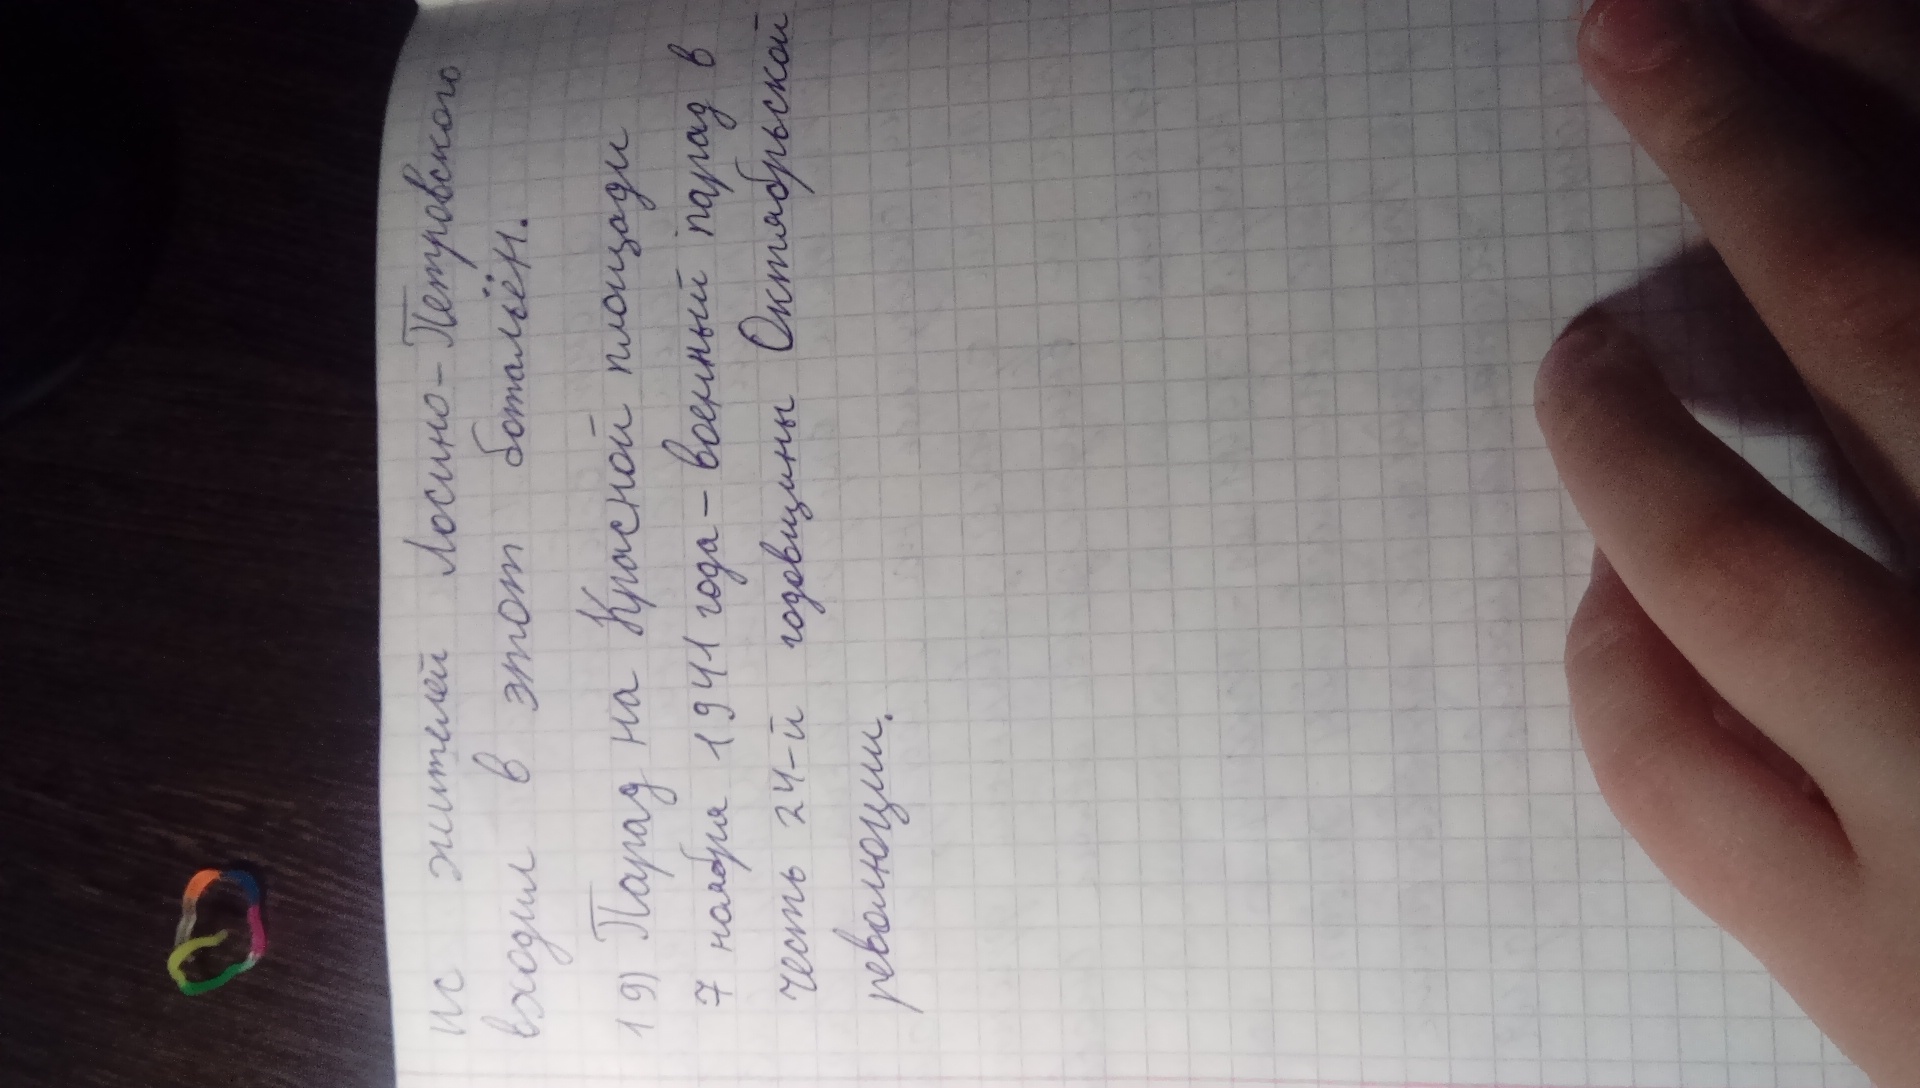 ис жителей Лосино-Петровского
входил в этот ботальён.
19) Парад на Красной площади
7 ноября 1941 года - военный парад в
честь 24-й годовщины Октябрьской
революции.